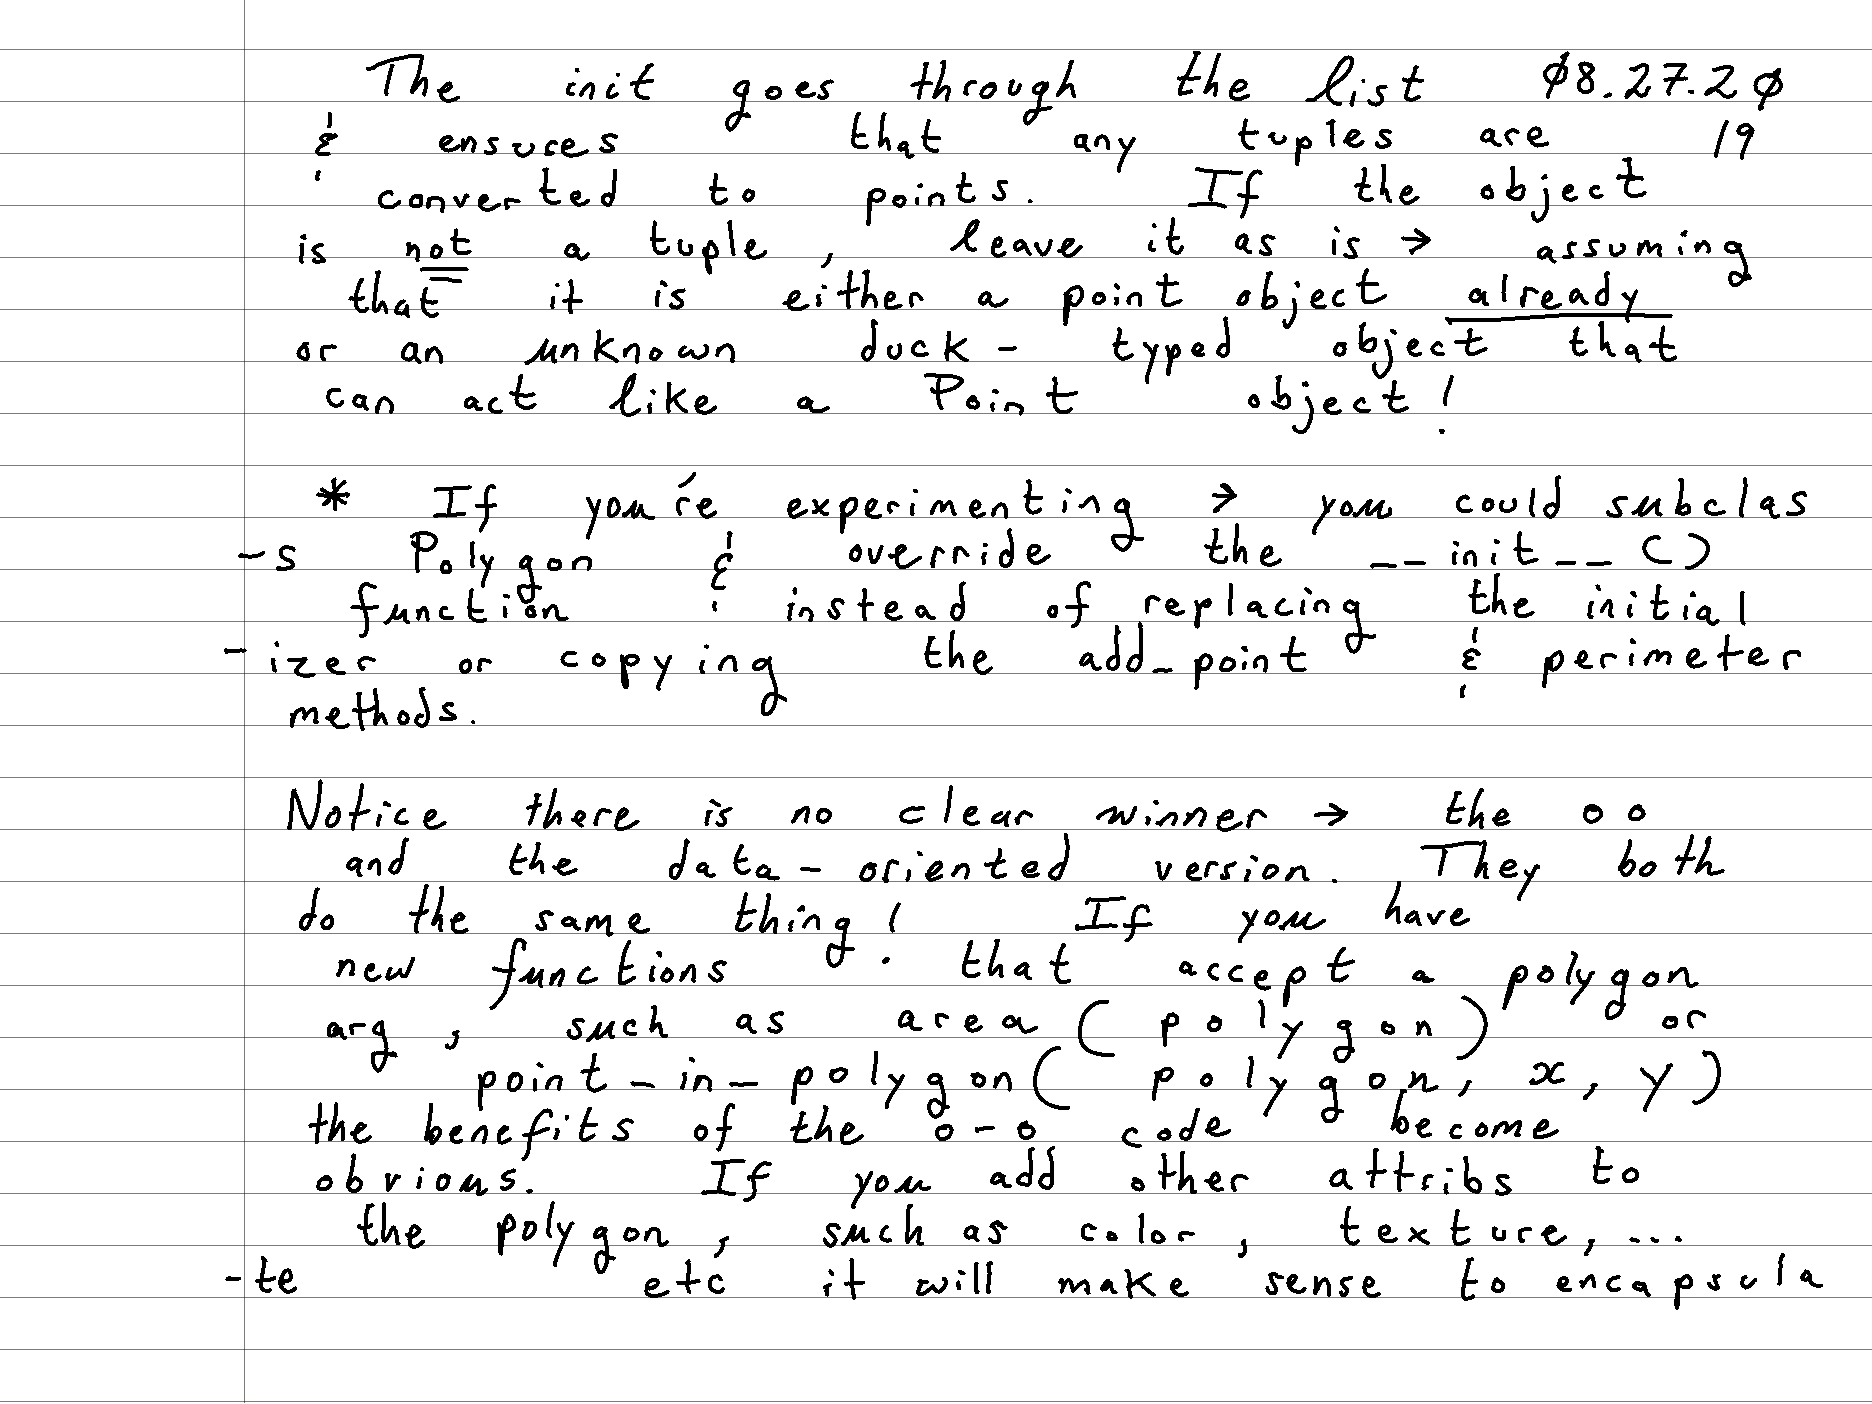 The init goes through the list Ø8.27.2Ø
& ensures that any tuples are 19
converted to points. If the object
is not a tuple, leave it as is → assuming
that it is either a point object already
or an unknown duck - typed object that
can act like a Point object!
* If you're experimenting → you could subclas
-s Polygon & override the __init__()
function & instead of replacing the initial
-izer or copying the add_point & perimeter
methods.
Notice there is no clear winner → the oo
and the data-oriented version. They both
do the same thing! If you have
new functions that accept a polygon
arg, such as area (polygon) or
point_in_polygon( polygon, x, y)
the benefits of the o-o code become
obvious. If you add other attribs to
the polygon, such as color, texture, ...
-te etc it will make sense to encapsula